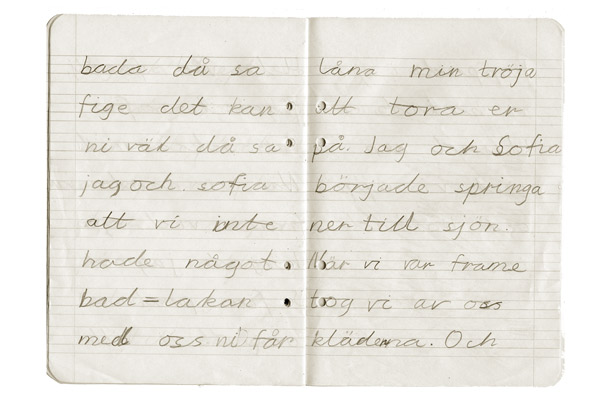 bada då sa
fige det kan
ni väl då sa
jag och. sofia
att vi inte
hade något
bad=lakan
med oss ni får
låna min tröja
att tora er
på. Jag och Sofia
började springa
ner till sjön.
När vi var frame
tog vi av oss
kläderna. Och